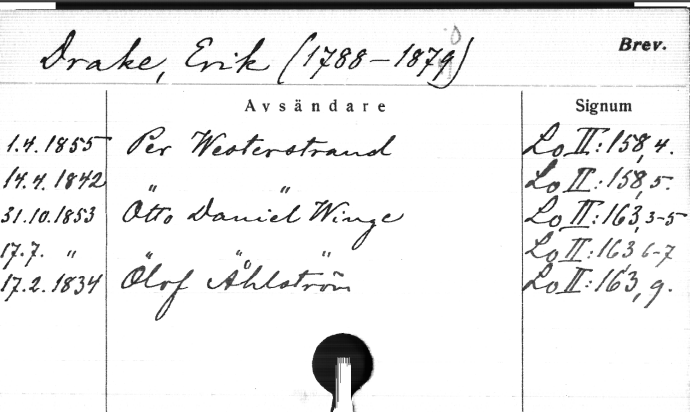 Drake, Erik (1788-1879)
0
Brev.
Avsändare
Signum
1.4.1855 Per Westerstrand Lo II:158,4.
14.4.1842 " " Lo II:158,5.
31.10.1853 Otto Daniel Winge Lo II:163,3-5
17.7. " " " " Lo II:163 6-7
17.2.1834 Olof Åhlström Lo II:163,9.